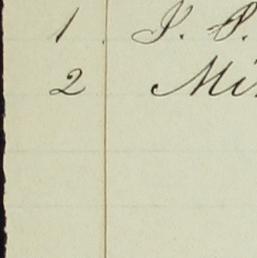 1. J. P.
2 Mi